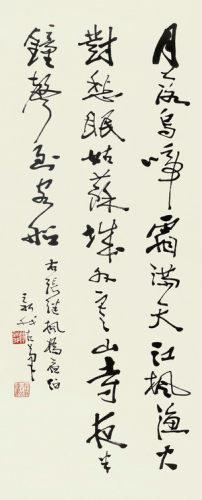 月落烏啼霜滿天江楓漁火
對愁眠姑蘇城外寒山寺夜半
鐘聲到客船
右張繼楓橋夜泊